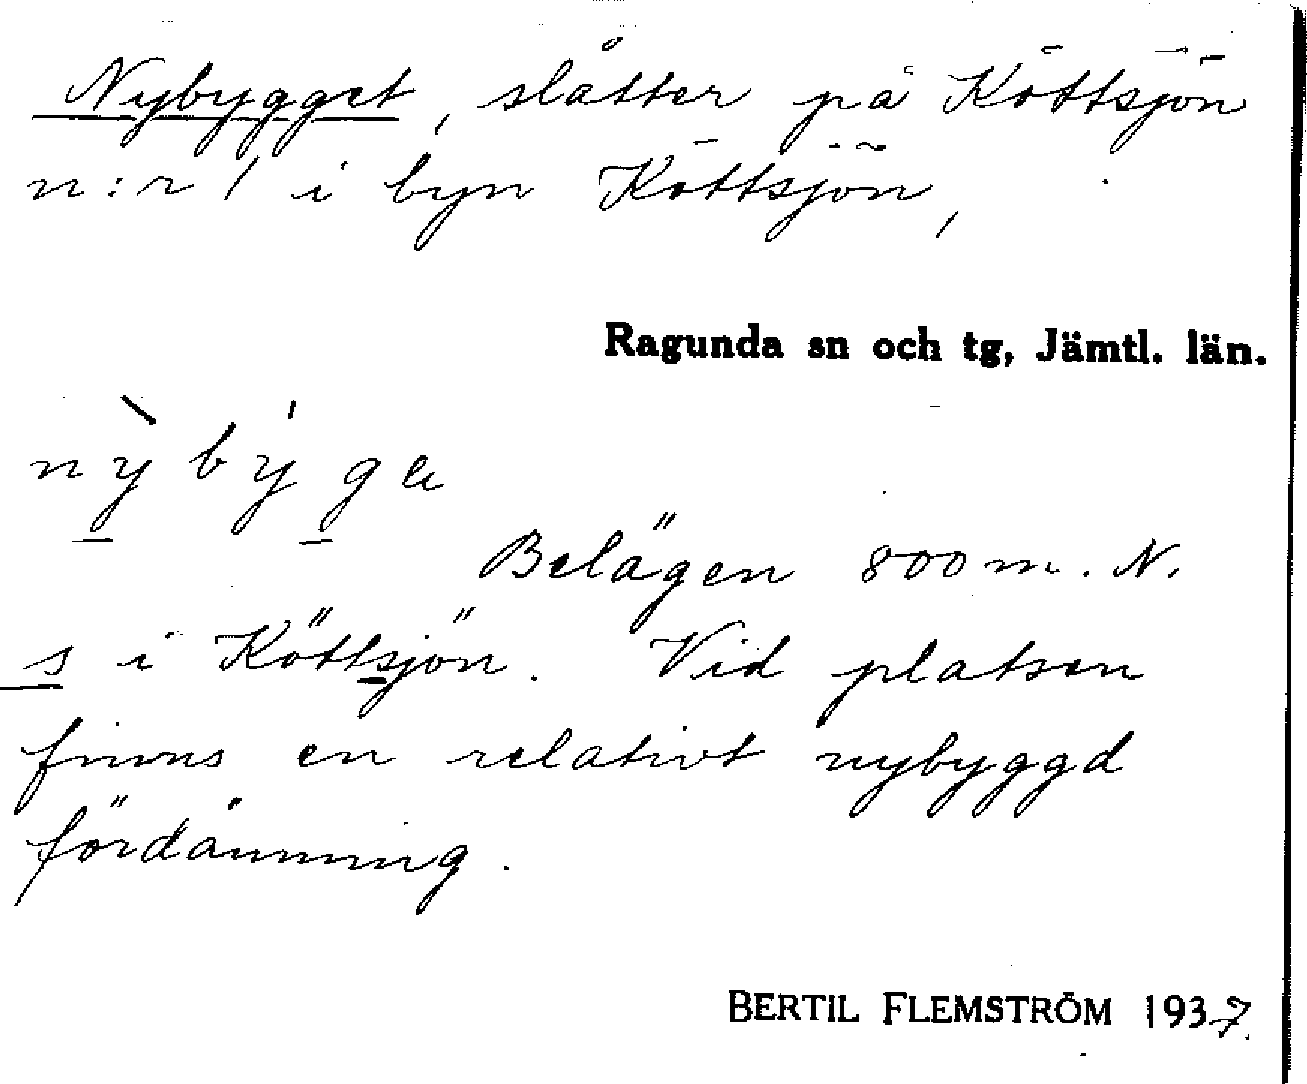 Nybygget, slåtter på Köttsjön
n:r 1 i byn Köttsjön,
Ragunda sn och tg, Jämtl. län.
Belägen 800 m. N.
s i Köttsjön. Vid platsen
finns en relativt nybyggd
fördämning.
BERTIL FLEMSTRÖM 1937.